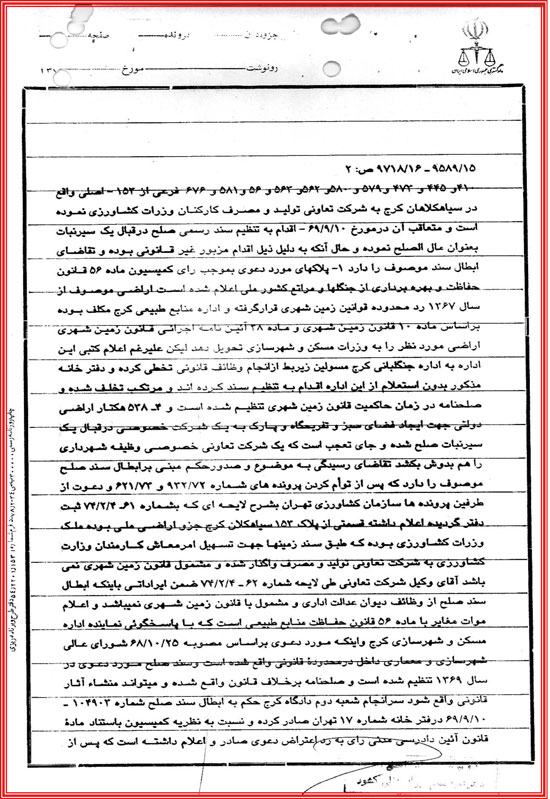 جزوه‌دان
پرونده
صفحه
دادگستری جمهوری اسلامی ایران
رونوشت
مورخ
۱۳
۹۵۸۹/۱۵ - ۹۷۱۸/۱۶ ص: ۲
۴۱۰و ۴۴۵ و ۴۷۳ و ۵۷۹ و ۵۸۰و ۵۶۲و ۵۶۳ و ۵۶ و ۵۸۱ و ۶۷۶ فرعی از ۱۵۳ - اصلی واقع
در سیاهکلاهان کرج به شرکت تعاونی تولید و مصرف کارکنان وزرات کشاورزی نموده
است و متعاقب آن درمورخ ۶۹/۹/۱۰ - اقدام به تنظیم سند رسمی صلح درقبال یک سیرنبات
بعنوان مال الصلح نموده و حال آنکه به دلیل ذیل اقدام مزبور غیر قانونی بوده و تقاضای
ابطال سند موصوف را دارد ۱- پلاکهای مورد دعوی بموجب رای کمیسیون ماده ۵۶ قانون
حفاظت و بهره برداری از جنگلها و مراتع کشور ملی اعلام شده است اراضی موصوف از
سال ۱۳۶۷ رد محدوده قوانین زمین شهری قرارگرفته و اداره منابع طبیعی کرج مکلف بوده
براساس ماده ۱۰ قانون زمین شهری و ماده ۲۸ آئین نامه اجرائی قانون زمین شهری
اراضی مورد نظر را به وزرات مسکن و شهرسازی تحویل دهد لیکن علیرغم اعلام کتبی این
اداره به اداره جنگلبانی کرج مسولین زیربط ازانجام وظائف قانونی تخطی کرده و دفتر خانه
مذکور بدون استعلام از این اداره اقدام به تنظیم سند کرده اند و مرتکب تخلف شده و
صلحنامه در زمان حاکمیت قانون زمین شهری تنظیم شده است و ۴- ۵۳۸ هکتار اراضی
دولتی جهت ایجاد فضای سبز و تفریحگاه و پارک به یک شرکت خصوصی درقبال یک
سیرنبات صلح شده و جای تعجب است که یک شرکت تعاونی خصوصی وظیفه شهرداری
را هم بدوش بکشد تقاضای رسیدگی به موضوع و صدورحکم مبنی برابطال سند صلح
موصوف را دارد که پس از توأم کردن پرونده های شماره ۹۳۲/۷۲ و ۶۲۱/۷۳ و دعوت از
طرفین پرونده ها سازمان کشاورزی تهران بشرح لایحه ای که بشماره ۶۱- ۷۴/۲/۴ ثبت
دفتر گردیده اعلام داشته قسمتی از پلاک ۱۵۳ سیاهکلان کرج جزو اراضی ملی بوده ملک
وزرات کشاورزی بوده که طبق سند زمینها جهت تسهیل امرمعاش کارمندان وزارت
کشاورزی به شرکت تعاونی تولید و مصرف واگذار شده و مشمول قانون زمین شهری نمی
باشد آقای وکیل شرکت تعاونی طی لایحه شماره ۶۲ - ۷۴/۲/۴ ضمن ایراداتی باینکه ابطال
سند صلح از وظائف دیوان عدالت اداری و مشمول با قانون زمین شهری نمیباشد و اعلام
موات مغایر با ماده ۵۶ قانون حفاظت منابع طبیعی است که با پاسخگوئی نماینده اداره
مسکن و شهرسازی کرج واینکه مورد دعوی براساس مصوبه ۶۸/۱۰/۲۵ شورای عالی
شهرسازی و معماری داخل درمحدردۀ قانونی واقع شده است وسند صلح مورد دعوی در
سال ۱۳۶۹ تنظیم شده است و صلحنامه برخلاف قانون واقع شده و میتواند منشاء آثار
قانونی واقع شود سرانجام شعبه دوم دادگاه کرج حکم به ابطال سند صلح شماره ۱۰۴۹۰۳ -
۶۹/۹/۱۰ درفتر خانه شماره ۱۷ تهران صادر کرده و نسبت به نظریه کمیسیون باستناد مادۀ
قانون آئین دادرسی مدنی رای به رد اعتراض دعوی صادر و اعلام داشته است که پس از